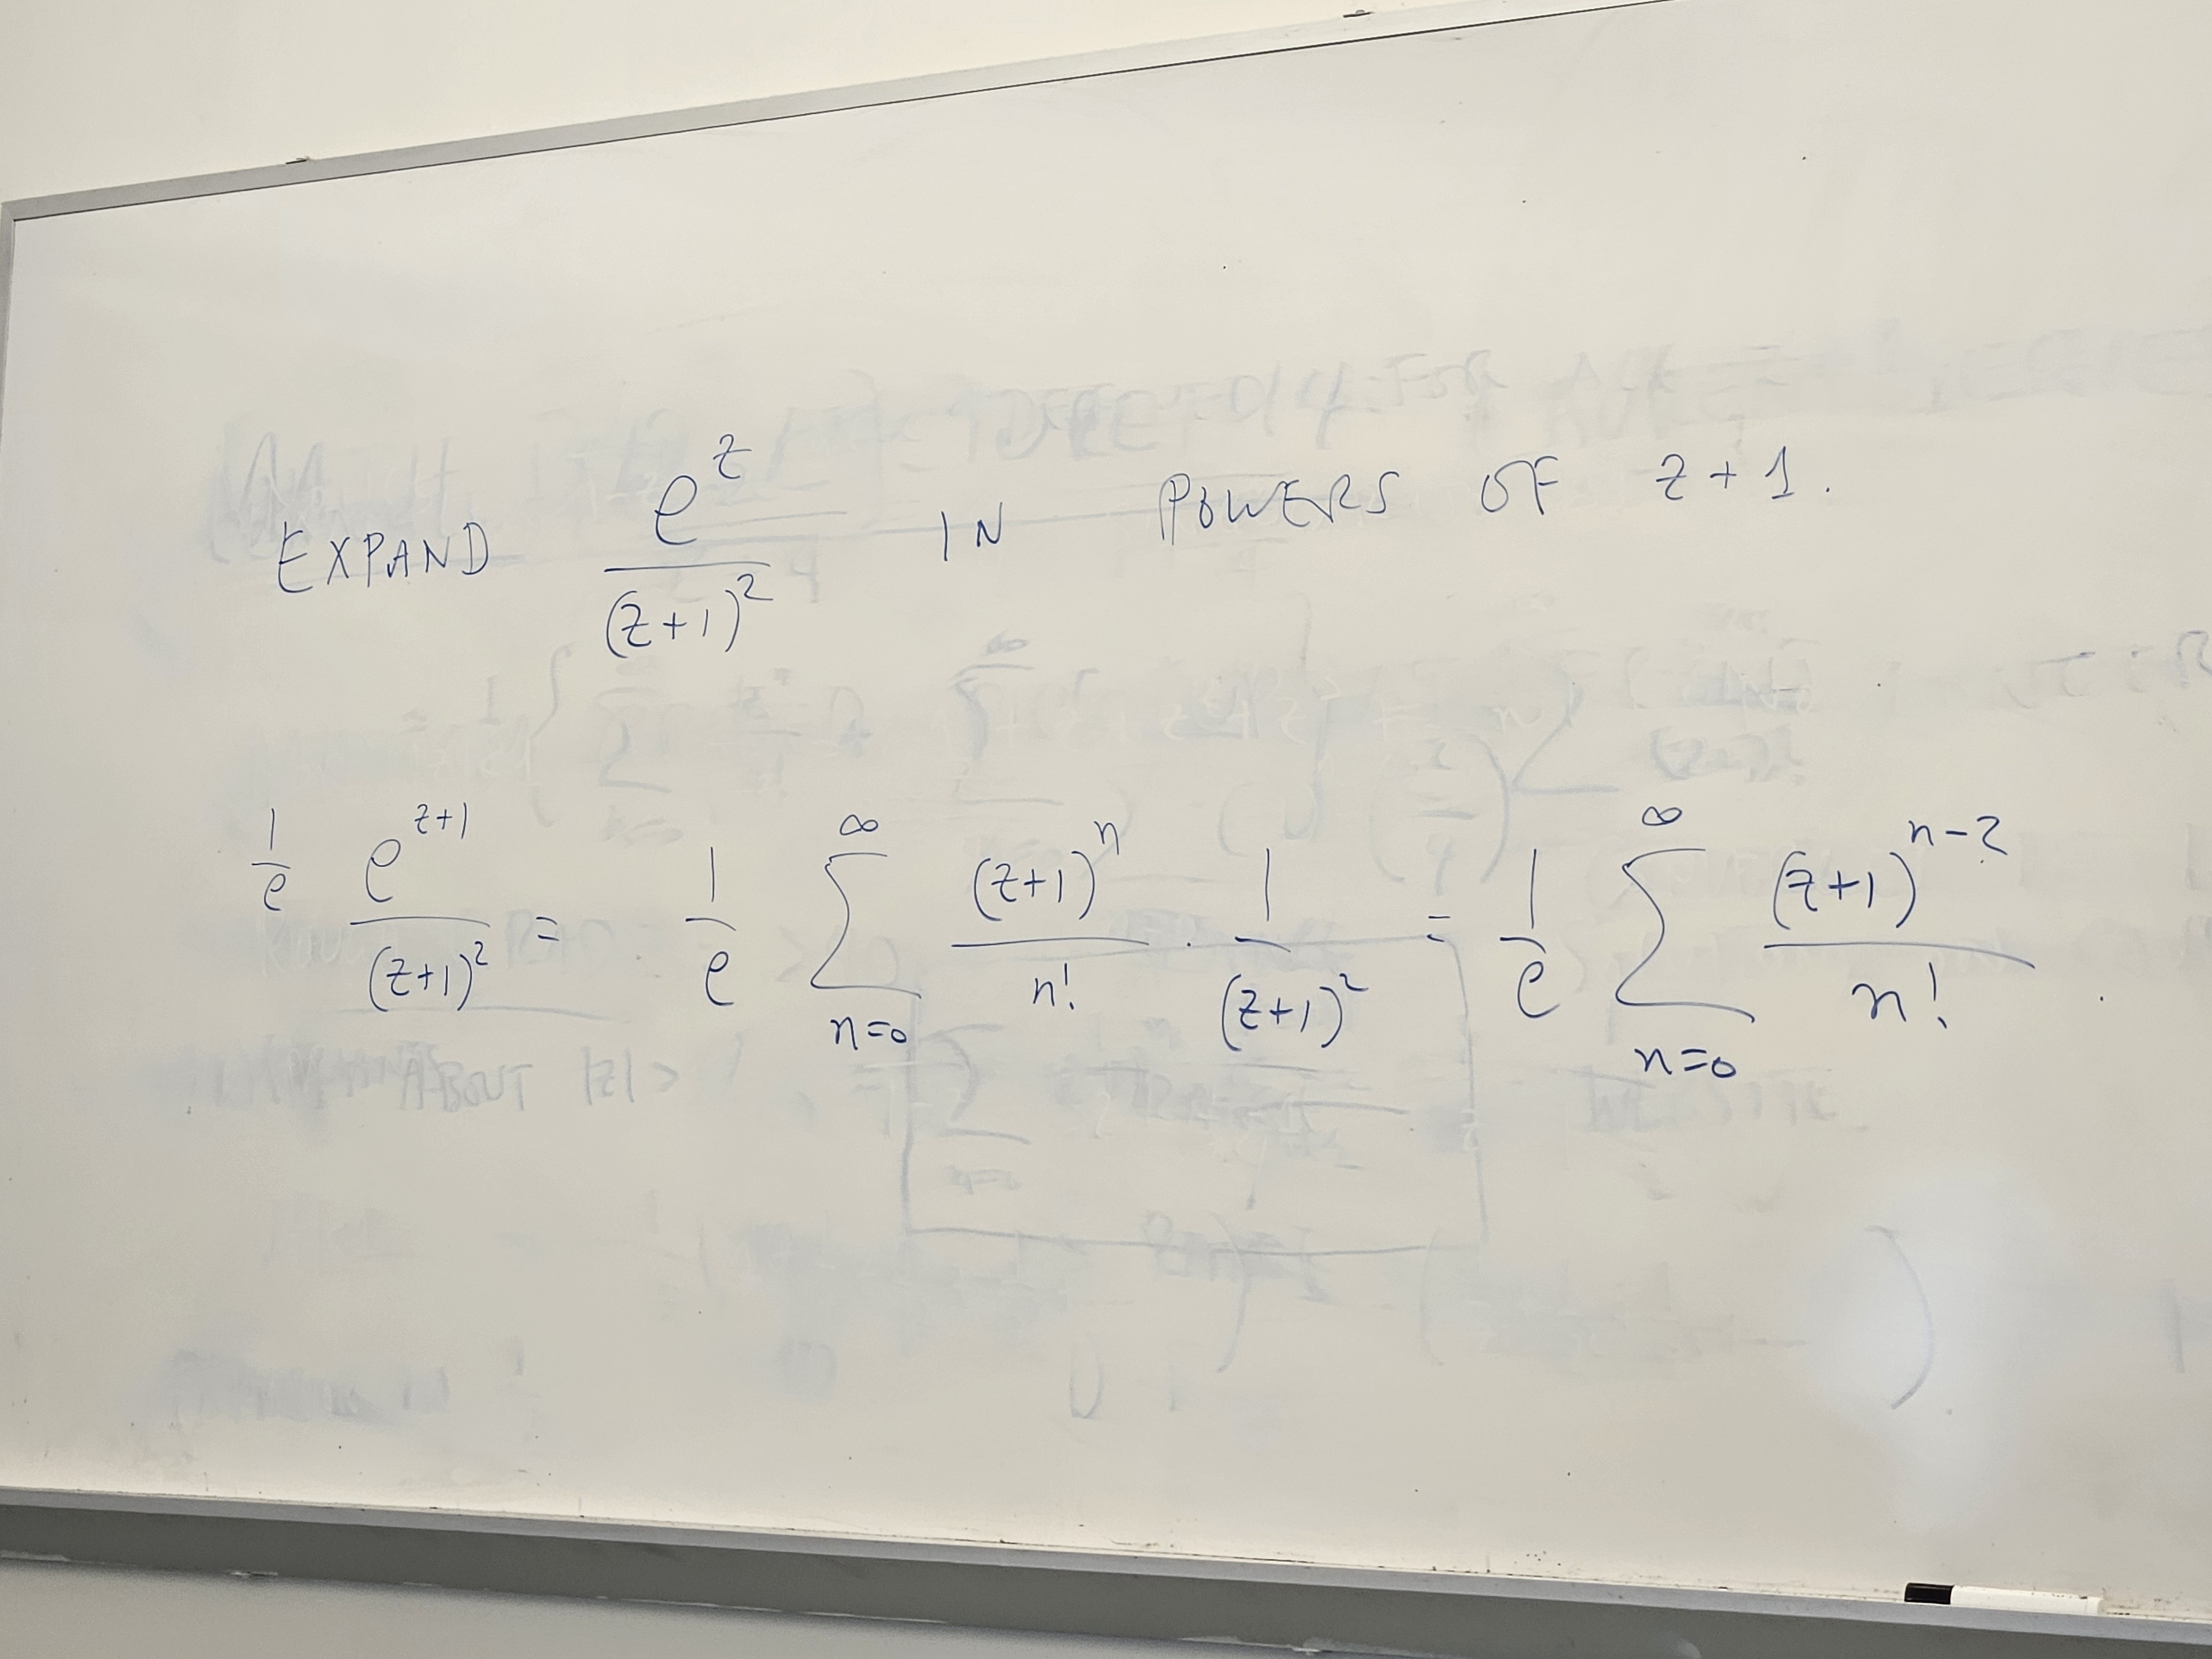 EXPAND e^z / (z+1)^2 IN POWERS OF z+1.
1/e e^(z+1) / (z+1)^2 = 1/e ∑_{n=0}^{∞} (z+1)^n / n! · 1 / (z+1)^2 = 1/e ∑_{n=0}^{∞} (z+1)^(n-2) / n! .
ABOUT |z| >